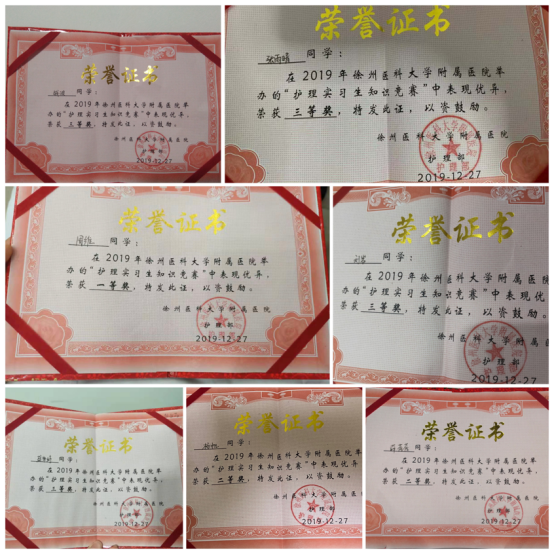 荣誉证书
同学：
在2019年徐州医科大学附属医院举
办的“护理实习生知识竞赛”中表现优异，
荣获 三等奖，特发此证，以资鼓励。
徐州医科大学附属医院
护理部
2019-12-27
张雨晴 同学：
在2019年徐州医科大学附属医院举
办的“护理实习生知识竞赛”中表现优异，
荣获 三等奖，特发此证，以资鼓励。
徐州医科大学附属医院
护理部
2019-12-27
荣誉证书
同学：
在2019年徐州医科大学附属医院举
办的“护理实习生知识竞赛”中表现优异，
荣获 一等奖，特发此证，以资鼓励。
徐州医科大学附属医院
护理部
2019-12-27
荣誉证书
同学：
在2019年徐州医科大学附属医
办的“护理实习生知识竞赛”中表现优
荣获 三等奖，特发此证，以资鼓励。
徐州医科大学附属医
护理部
2019-12-27
荣誉证书
同学：
在2019年徐州医科大学附属医院举
办的“护理实习生知识竞赛”中表现优异，
荣获 三等奖，特发此证，以资鼓励。
徐州医科大学附属医院
护理部
2019-12-27
荣誉证书
同学：
在2019年徐州医科大学附属医院举
办的“护理实习生知识竞赛”中表现优异，
荣获 二等奖，特发此证，以资鼓励。
徐州医科大学附属医院
护理部
2019-12-27
荣誉证书
同学：
在2019年徐州医科大学附属医院举
办的“护理实习生知识竞赛”中表现优异，
荣获 二等奖，特发此证，以资鼓励。
徐州医科大学附属医院
护理部
2019-12-27